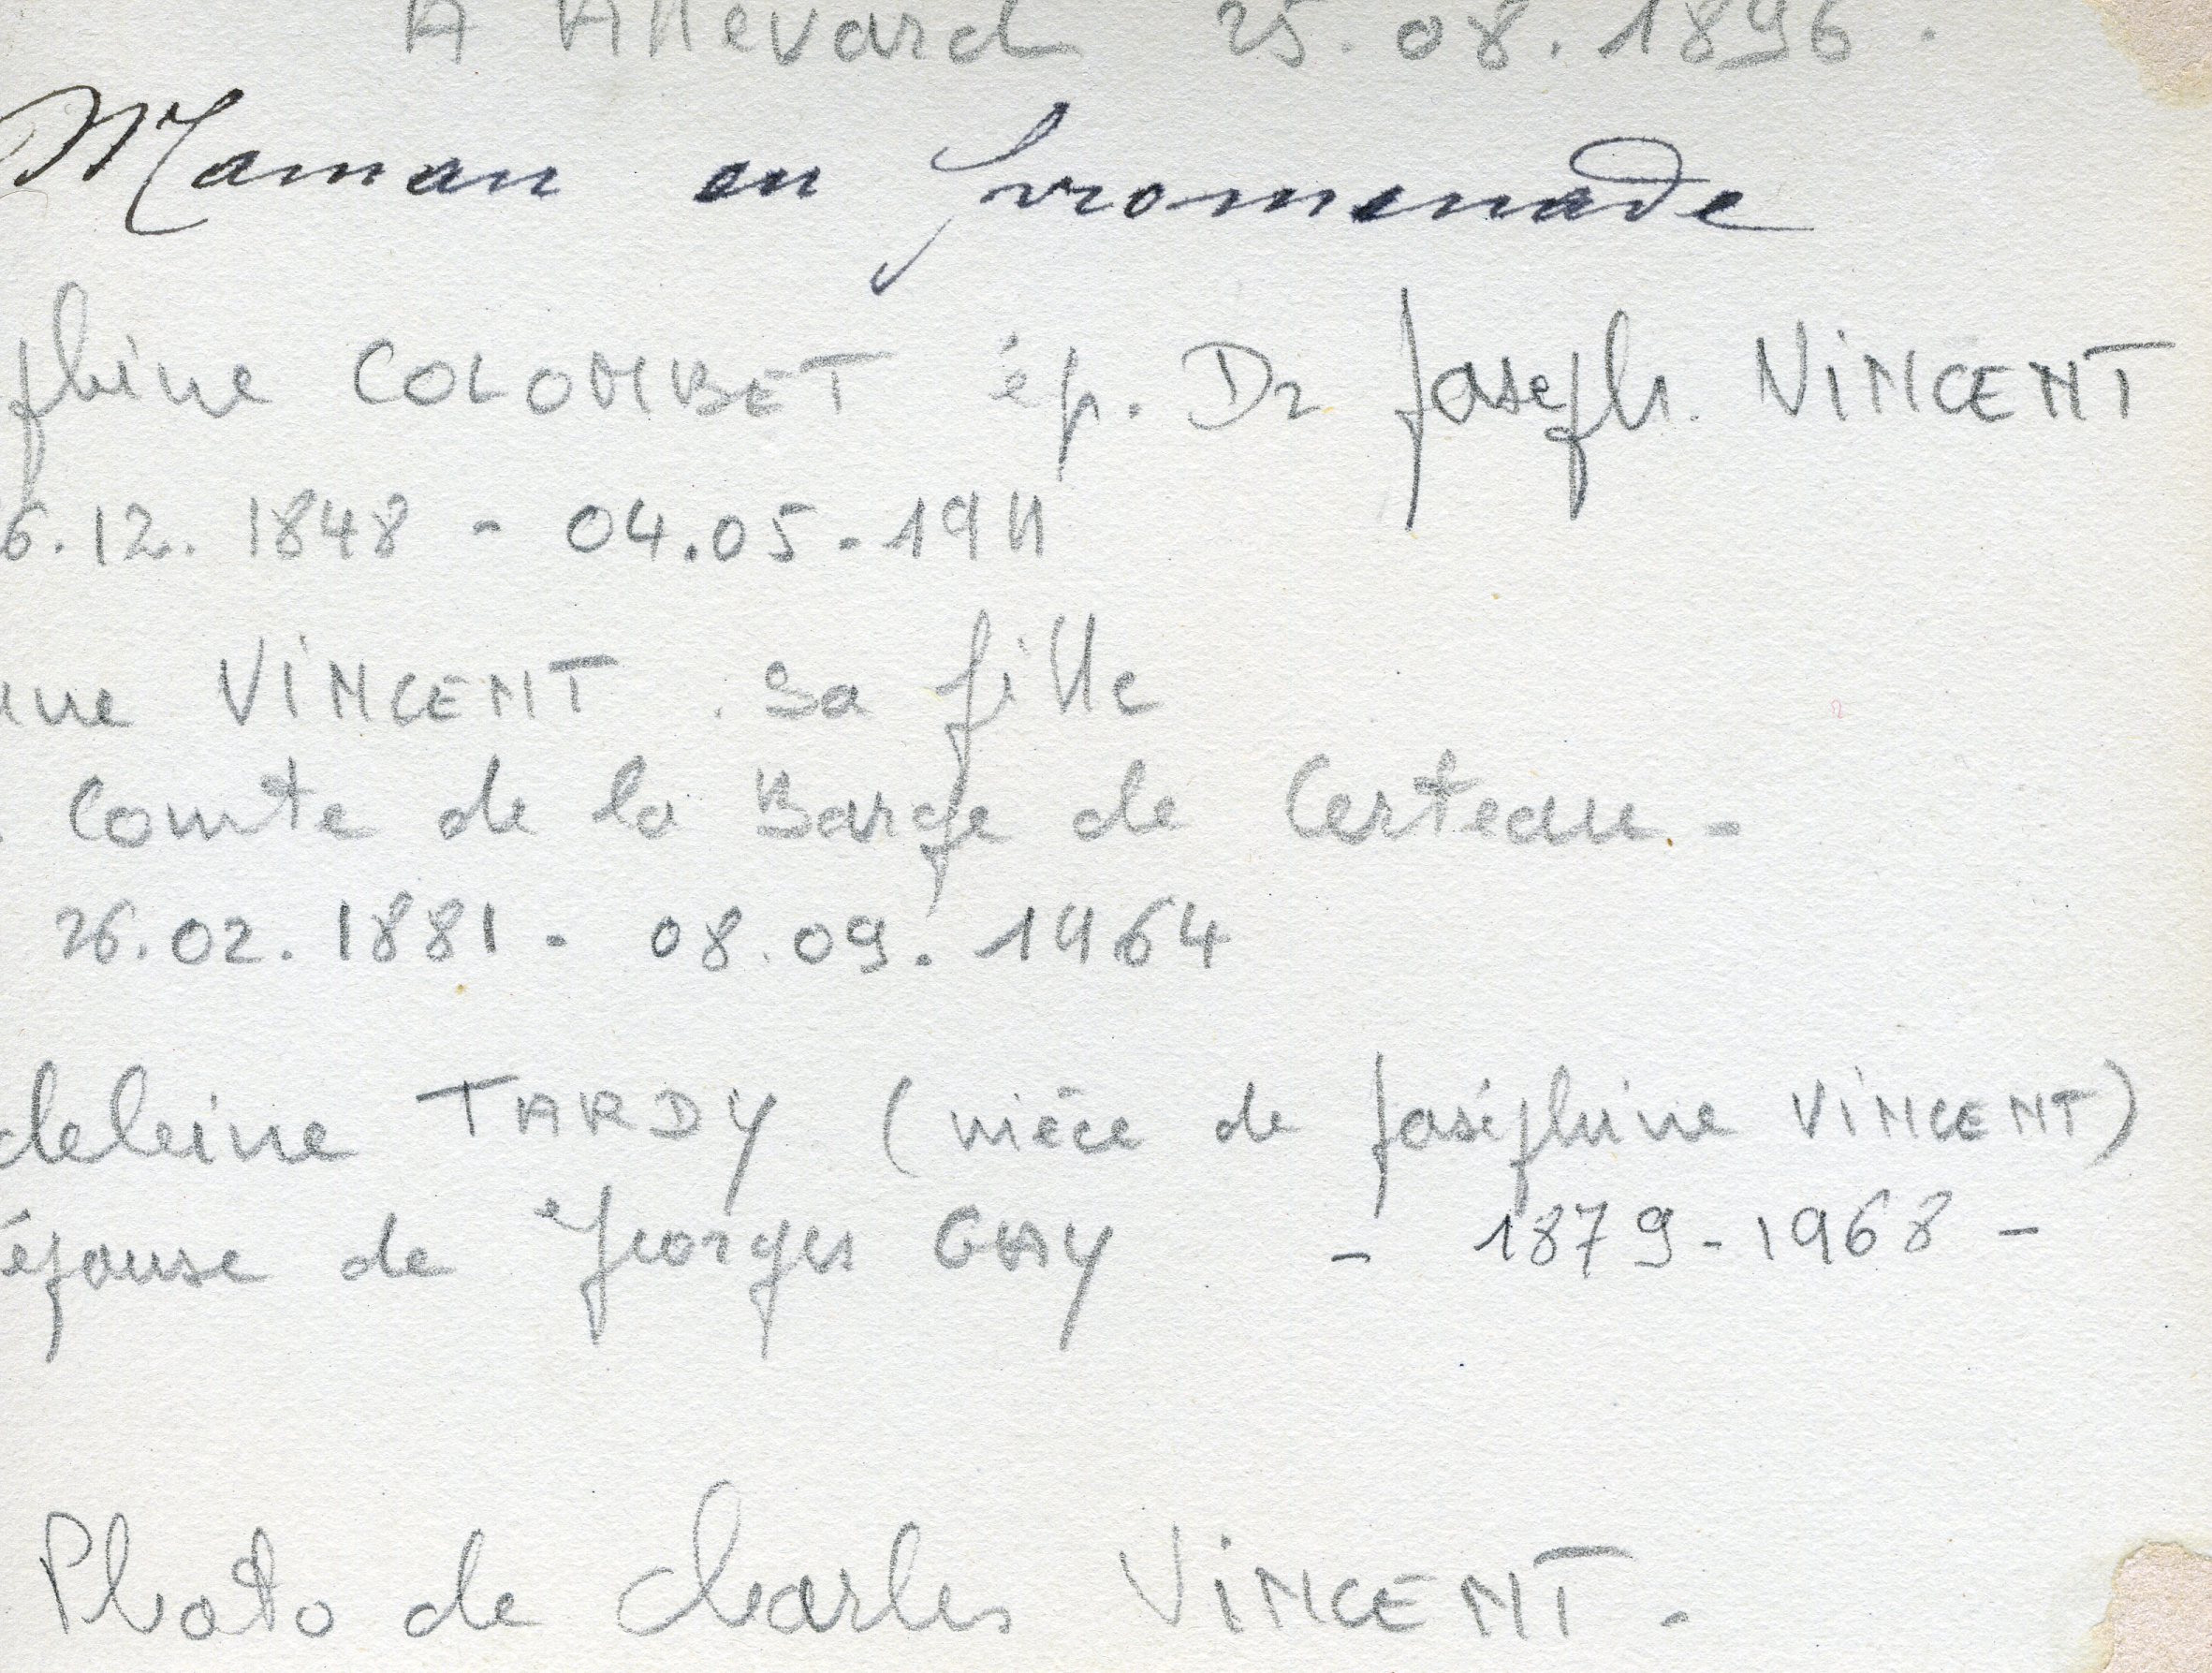 A Allevard 25.08.1896.
Maman en promenade
phine COLOMBET ép. Dr Joseph. VINCENT
6.12.1848 - 04.05.1911
nne VINCENT. Sa fille
. Comte de la Barge de Certeau -
26.02.1881 - 08.09.1964
deleine TARDY (nièce de Joséphine VINCENT)
épouse de Georges GAY - 1879-1968 -
Photo de Charles VINCENT -